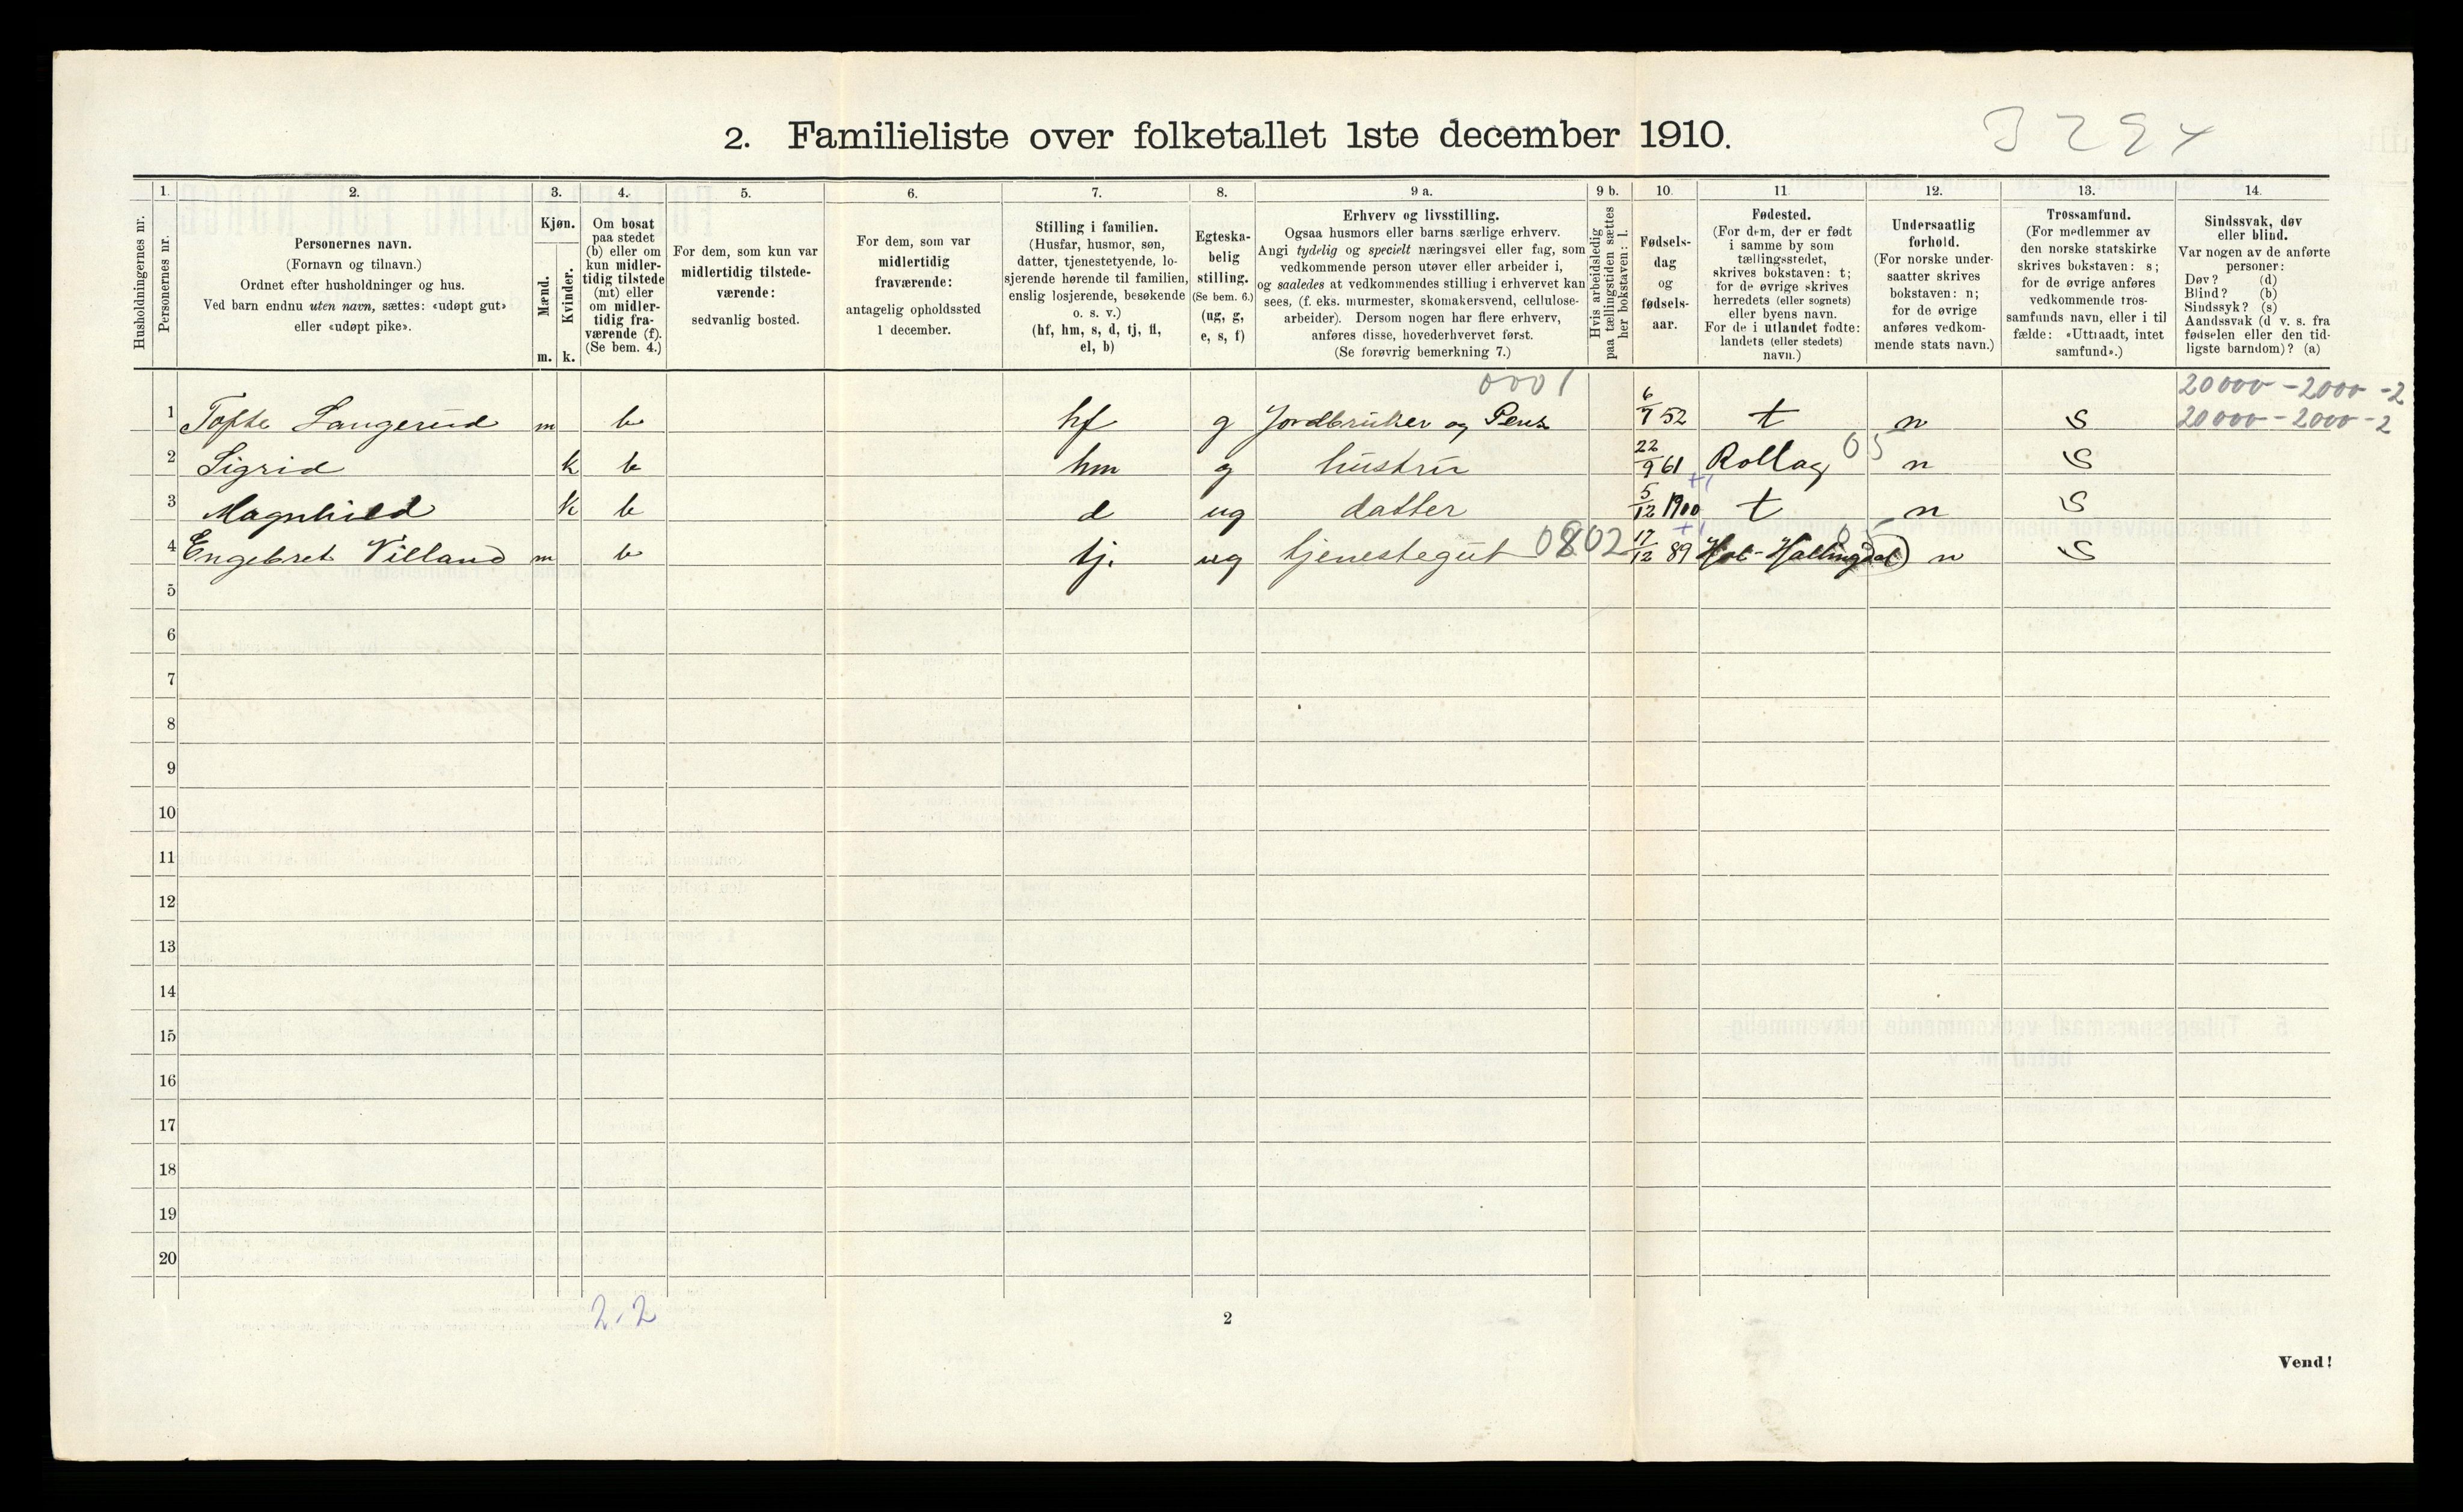 2. Familieliste over folketallet 1ste december 1910.
1. 2. 3. 4. 5. 6. 7. 8. 9 a. 9 b. 10. 11. 12. 13. 14.
Husholdningernes nr.
Personernes nr.
Personernes navn.
(Fornavn og tilnavn.)
Ordnet efter husholdninger og hus.
Ved barn endnu uten navn, sættes: «udøpt gut»
eller «udøpt pike».
Kjøn.
Mænd.
Kvinder.
m. k.
Om bosat
paa stedet
(b) eller om
kun midler-
tidig tilstede
(mt) eller
om midler-
tidig fra-
værende (f).
(Se bem. 4.)
For dem, som kun var
midlertidig tilstede-
værende:
sedvanlig bosted.
For dem, som var
midlertidig
fraværende:
antagelig opholdssted
1 december.
Stilling i familien.
(Husfar, husmor, søn,
datter, tjenestetyende, lo-
sjerende hørende til familien,
enslig losjerende, besøkende
o. s. v.)
(hf, hm, s, d, tj, fl,
el, b)
Egteska-
belig
stilling.
(Se bem. 6.)
(ug, g,
e, s, f)
Erhverv og livsstilling.
Ogsaa husmors eller barns særlige erhverv.
Angi tydelig og specielt næringsvei eller fag, som
vedkommende person utøver eller arbeider i,
og saaledes at vedkommendes stilling i erhvervet kan
sees, (f. eks. murmester, skomakersvend, cellulose-
arbeider). Dersom nogen har flere erhverv,
anføres disse, hovederhvervet først.
(Se forøvrig bemerkning 7.)
Hvis arbeidsledig
paa tællingstiden sættes
her bokstaven: l.
Fødsels-
dag
og
fødsels-
aar.
Fødested.
(For dem, der er født
i samme by som
tællingsstedet,
skrives bokstaven: t;
for de øvrige skrives
herredets (eller sognets)
eller byens navn.
For de i utlandet fødte:
landets (eller stedets)
navn.)
Undersaatlig
forhold.
(For norske under-
saatter skrives
bokstaven: n;
for de øvrige
anføres vedkom-
mende stats navn.)
Trossamfund.
(For medlemmer av
den norske statskirke
skrives bokstaven: s;
for de øvrige anføres
vedkommende tros-
samfunds navn, eller i til
fælde: «Uttraadt, intet
samfund».)
Sindssvak, døv
eller blind.
Var nogen av de anførte
personer:
Døv? (d)
Blind? (b)
Sindssyk? (s)
Aandssvak (d v. s. fra
fødselen eller den tid-
ligste barndom)? (a)
0001 20000-2000-2
1 Tofte Langerud m b hf g Jordbruker og Pens 6/7 52 t n s 20000-2000-2
2 Sigrid k b hm g hustru 22/9 61 Rollag 05 n s
3 Magnhild k b d ug datter 5/12 1900 t n s
4 Engebret Villand m b tj. ug tjenestegut 0802 17/12 89 Hol-Hallingdal n s
5
6
7
8
9
10
11
12
13
14
15
16
17
18
19
20
2.2
2
Vend!